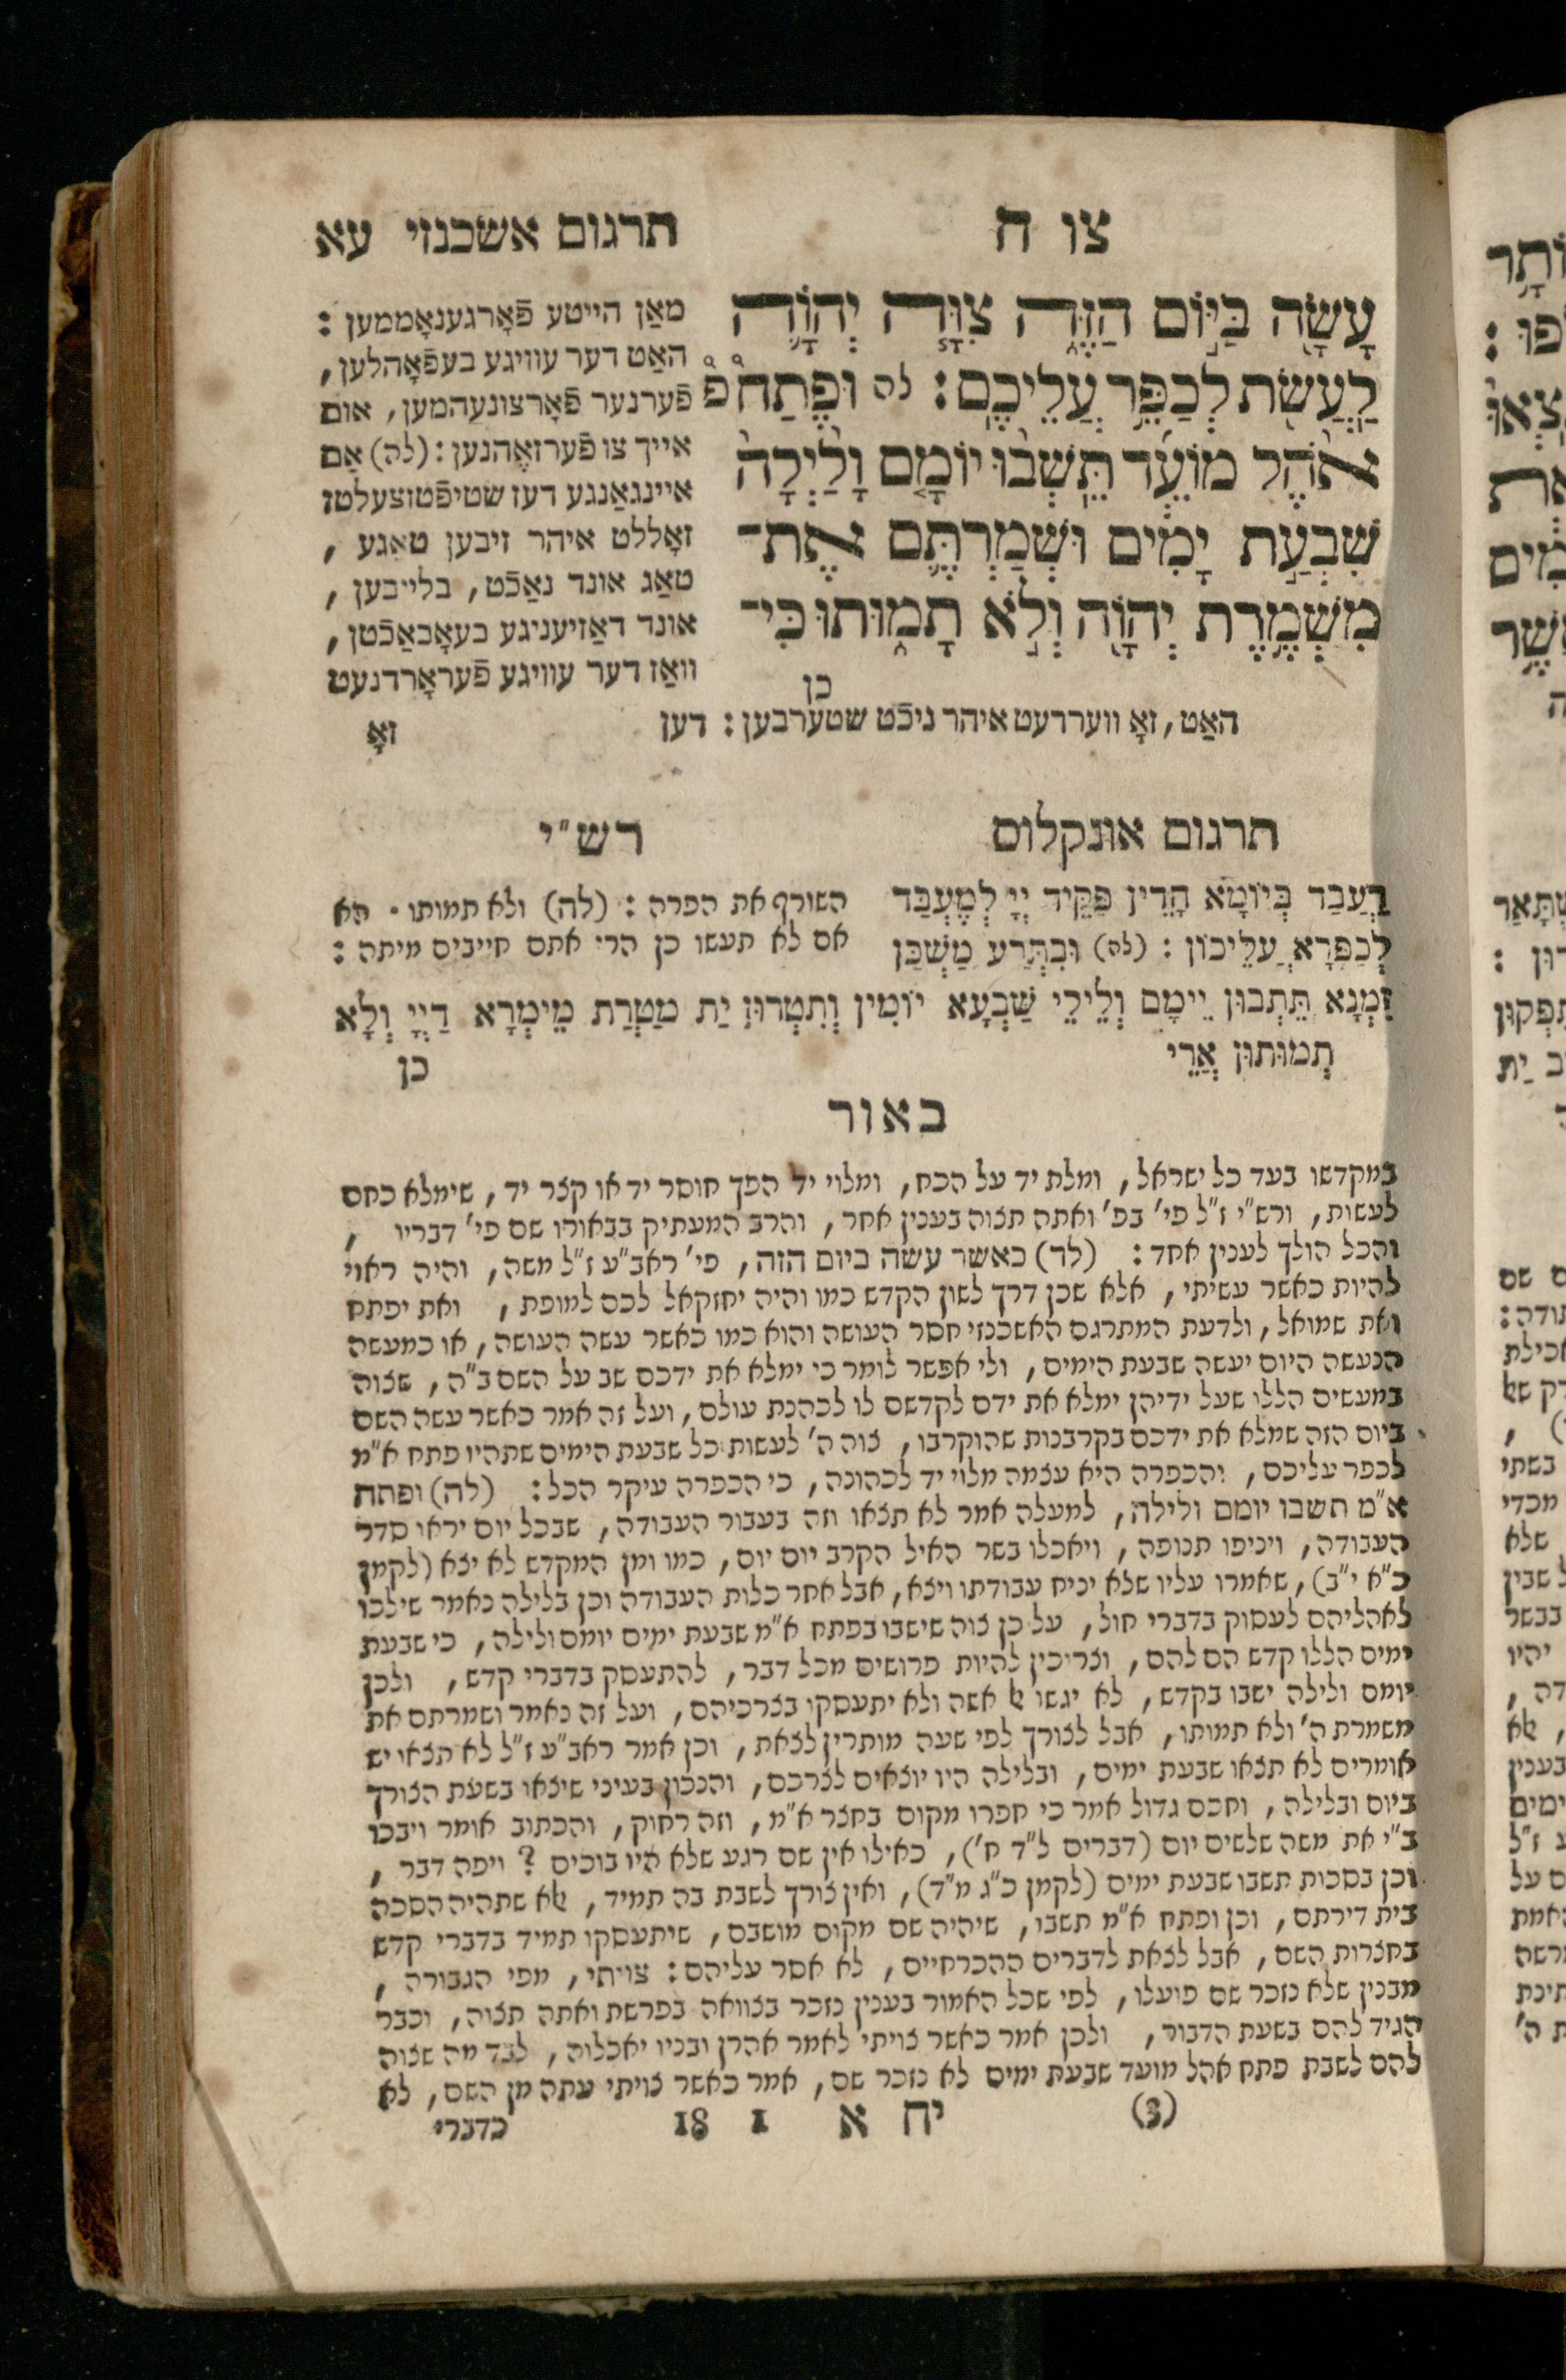 צו ח
תרגום אשכנזי עא
עָשָׂה בַּיּוֹם הַזֶּה צִוָּה יְהוָה
לַעֲשֹׂת לְכַפֵּר עֲלֵיכֶם : לה וּפֶתַח
אֹהֶל מוֹעֵד תֵּשְׁבוּ יוֹמָם וָלַיְלָה
שִׁבְעַת יָמִים וּשְׁמַרְתֶּם אֶת־
מִשְׁמֶרֶת יְהוָה וְלֹא תָמוּתוּ כִּי־
כן
מאַן הייטע פֿאָרגענאָממען :
האַט דער עוויגע בעפֿאָהלען,
פֿערנער פֿאָרצונעהמען, אום
אייך צו פֿערזאָהנען : (לה) אַם
איינגאַנגע דען שטיפֿטזצעלטז
זאָללט איהר זיבען טאגע ,
טאַג אונד נאַכֿט, בלייבען ,
אונד דאַזיעניגע בעאָבאַכֿטן,
וואַז דער עוויגע פֿעראָרדנעט
האַט, זאָ ווערדעט איהר ניכֿט שטערבען : דען
זאָ
תרגום אונקלוס
דַעֲבַד בְּיוֹמָא הָדֵין פַּקֵּיד יְיָ לְמֶעְבַּד
לְכַפָּרָא עֲלֵיכוֹן : (לה) וּבִתְרַע מַשְׁכַּן
זִמְנָא תֵּתְבוּן יֵימָם וְלֵילֵי שַׁבְעָא יוֹמִין וְתִטְּרוּן יַת מַטְּרַת מֵימְרָא דַיְיָ וְלָא
תְמוּתוּן אֲרֵי
כן
רש"י
השורף את הפרה : (לה) ולא תמותו · הא
אם לא תעשו כן הרי אתם חייבים מיתה :
באור
במקדשו בעד כל ישראל, ומלת יד על הכח, ומלוי יד הפך חוסר יד או קצר יד, שימלא כחם
לעשות, ורש"י ז"ל פי' בפ' ואתה תצוה בענין אחר, והרב המעתיק בבאורו שם פי' דבריו ,
והכל הולך לענין אחד : (לד) כאשר עשה ביום הזה, פי' ראב"ע ז"ל משה, והיה ראוי
להיות כאשר עשיתי, אלא שכן דרך לשון הקדש כמו והיה יחזקאל לכם למופת, ואת יפתח
ואת שמואל, ולדעת המתרגם האשכנזי חסר העושה והוא כמו כאשר עשה העושה, או כמעשה
הנעשה היום יעשה שבעת הימים, ולי אפשר לומר כי ימלא את ידכם שב על השם ב"ה, שצוה
במעשים הללו שעל ידיהן ימלא את ידם לקדשם לו לכהנת עולם, ועל זה אמר כאשר עשה השם
ביום הזה שמלא את ידכם בקרבנות שהוקרבו, צוה ה' לעשות כל שבעת הימים שתהיו פתח א"מ
לכפר עליכם, והכפרה היא עצמה מלוי יד לכהונה, כי הכפרה עיקר הכל : (לה) ופתח
א"מ תשבו יומם ולילה, למעלה אמר לא תצאו וזה בעבור העבודה, שבכל יום יראו סדר
העבודה, ויניפו תנופה, ויאכלו בשר האיל הקרב יום יום, כמו ומן המקדש לא יצא (לקמן
כ"א י"ב), שאמרו עליו שלא יניח עבודתו ויצא, אבל אחר כלות העבודה וכן בלילה נאמר שילכו
לאהליהם לעסוק בדברי חול, על כן צוה שישבו בפתח א"מ שבעת ימים יומם ולילה, כי שבעת
ימים הללו קדש הם להם, וצריכין להיות פרושים מכל דבר, להתעסק בדברי קדש, ולכן
יומם ולילה ישבו בקדש, לא יגשו אל אשה ולא יתעסקו בצרכיהם, ועל זה נאמר ושמרתם את
משמרת ה' ולא תמותו, אבל לצורך לפי שעה מותרין לצאת, וכן אמר ראב"ע ז"ל לא תצאו יש
אומרים לא תצאו שבעת ימים, ובלילה היו יוצאים לצרכם, והנכון בעיני שיצאו בשעת הצורך
ביום ובלילה, וחכם גדול אמר כי חפרו מקום בחצר א"מ, וזה רחוק, והכתוב אומר ויבכו
ב"י את משה שלשים יום (דברים ל"ד ח'), כאילו אין שם רגע שלא היו בוכים ? ויפה דבר ,
וכן בסכות תשבו שבעת ימים (לקמן כ"ג מ"ד), ואין צורך לשבת בה תמיד, אלא שתהיה הסכה
בית דירתם, וכן ופתח א"מ תשבו, שיהיה שם מקום מושבם, שיתעסקו תמיד בדברי קדש
בחצרות השם, אבל לצאת לדברים ההכרחיים, לא אסר עליהם : צויתי, מפי הגבורה ,
מבנין שלא נזכר שם פועלו, לפי שכל האמור בענין נזכר בצוואה בפרשת ואתה תצוה, וכבר
הגיד להם בשעת הדבור, ולכן אמר כאשר צויתי לאמר אהרן ובניו יאכלוה, לבד מה שצוה
להם לשבת פתח אהל מועד שבעת ימים לא נזכר שם, אמר כאשר צויתי עתה מן השם, לא
(3) יח א 1 18 כדברי